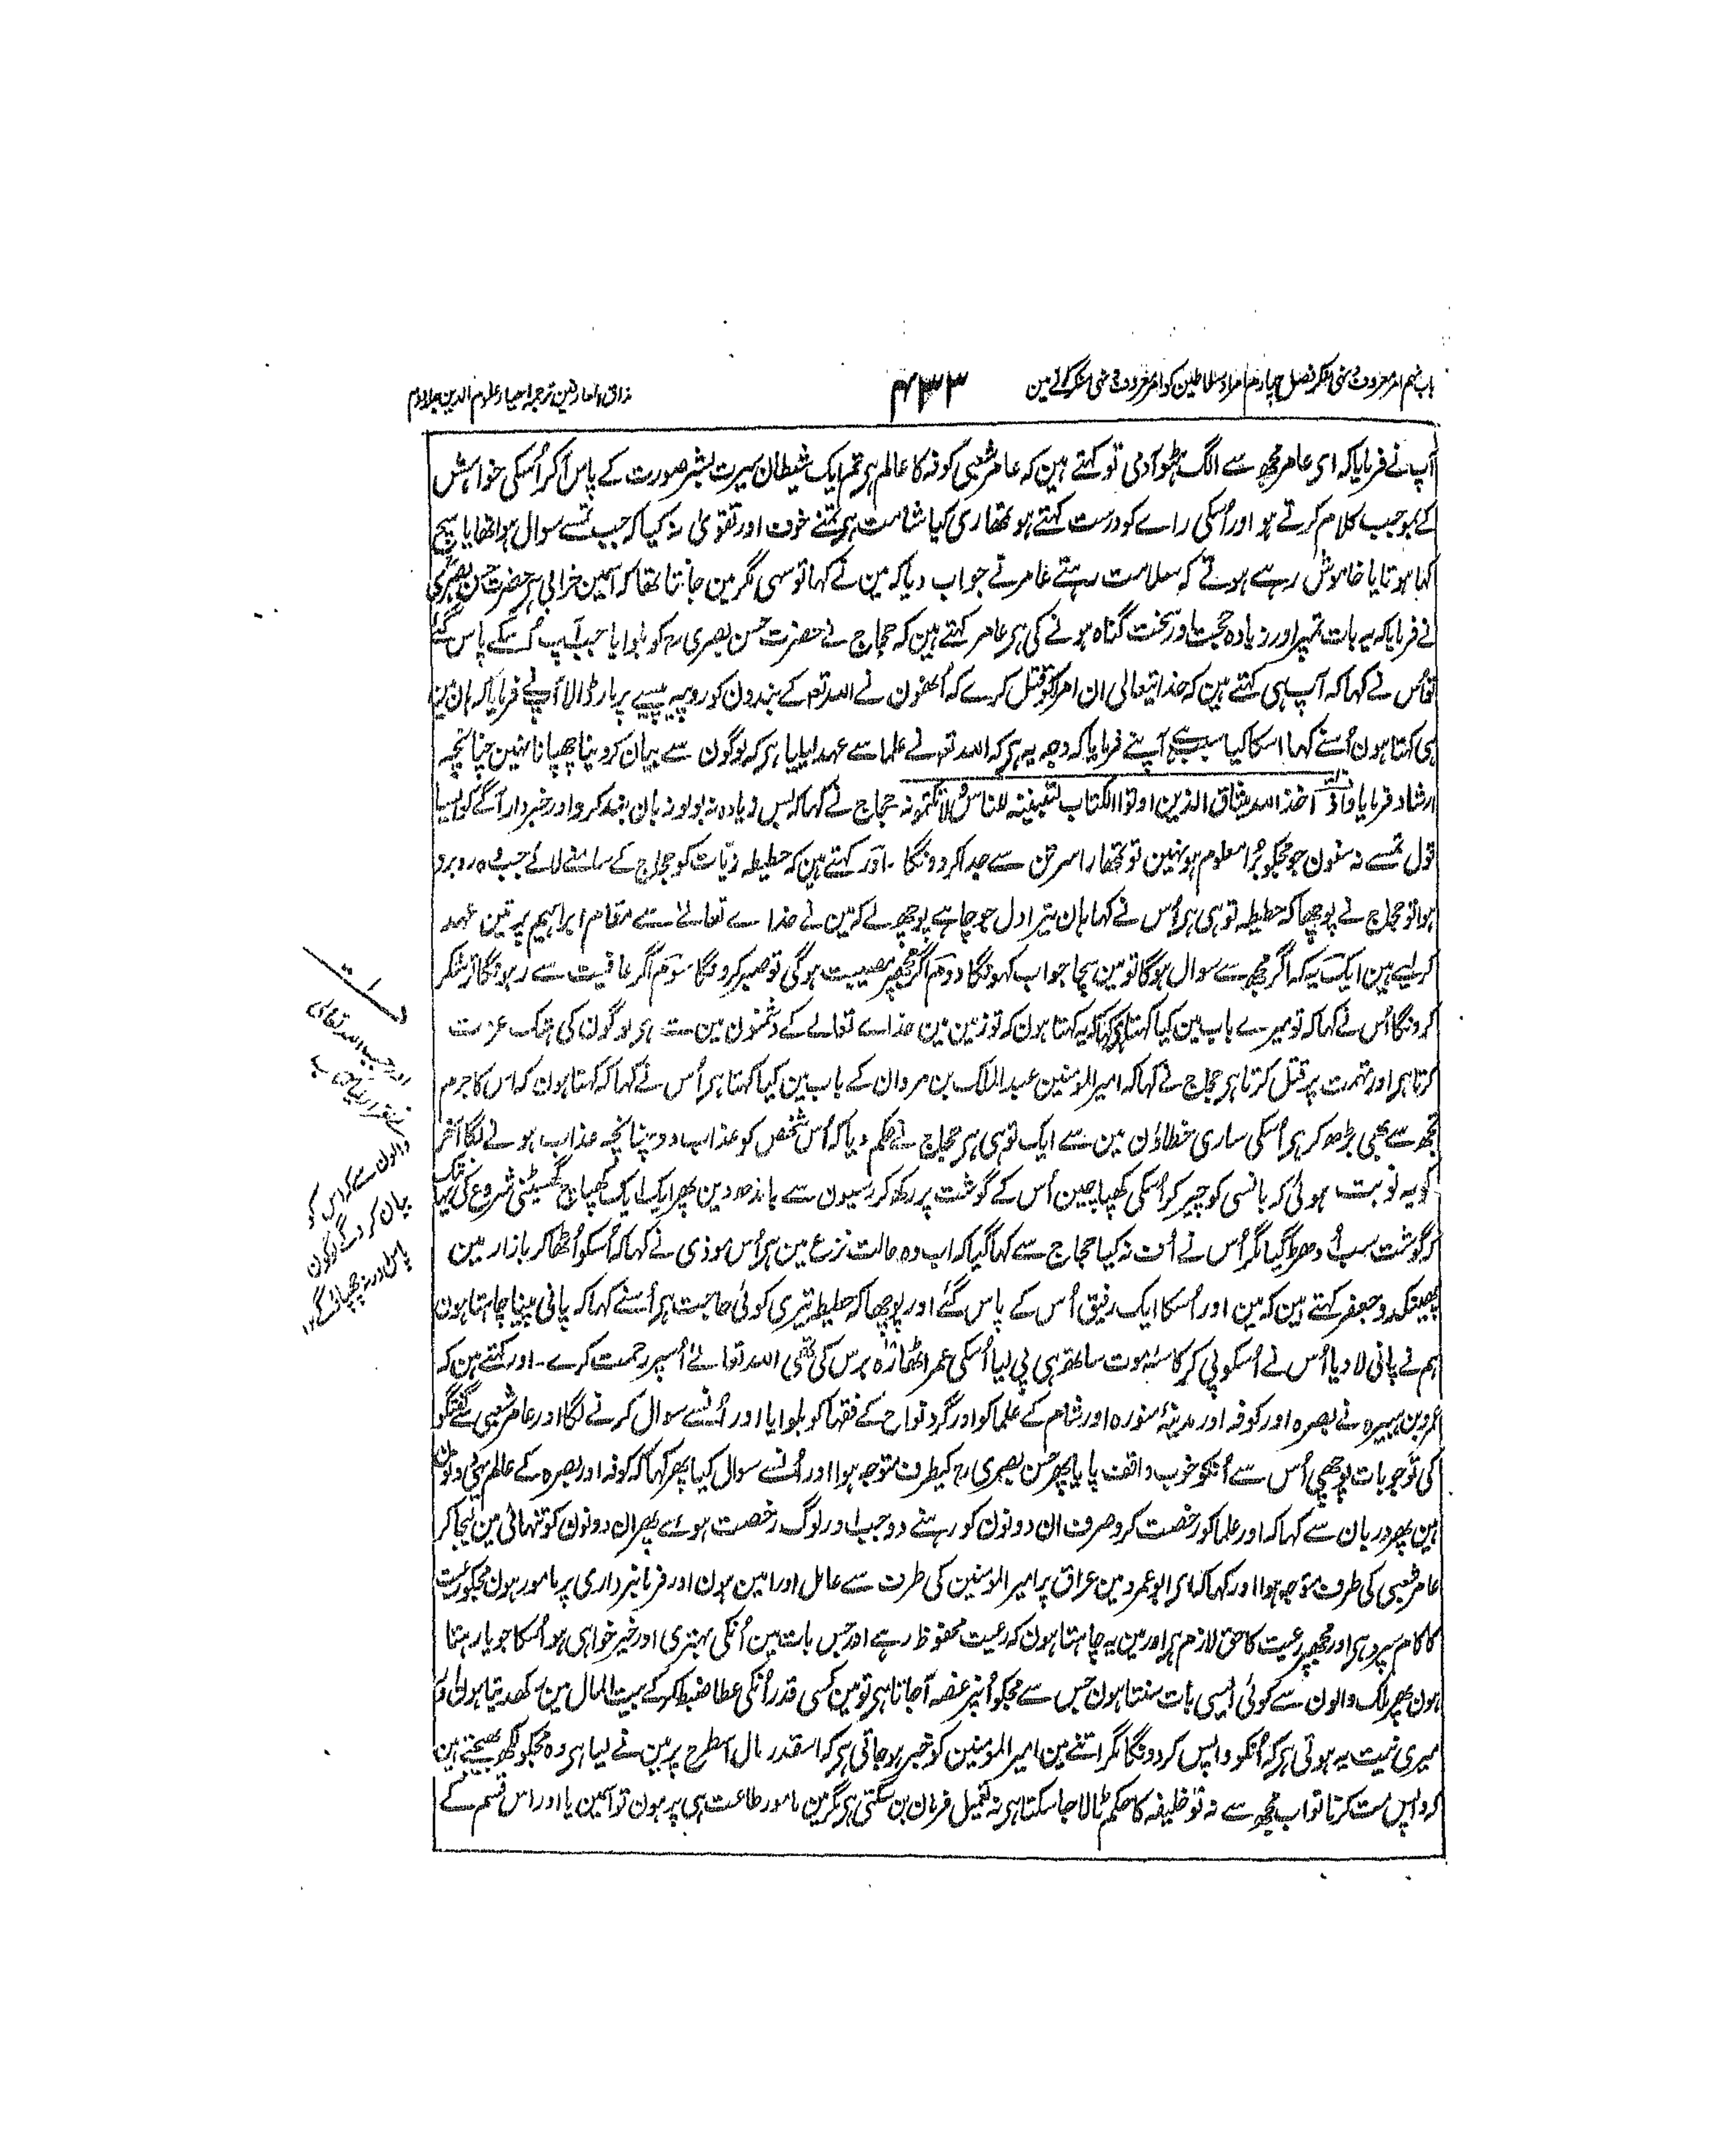 باب نہم امر معروف و نہی منکر فصل چہارم امرا و سلاطین کو امر معروف و نہی منکر کرنے مین
۴۳۳
مذاق العارفین ترجمہ احیاء علوم الدین جلد دوم
آپ نے فرمایا کہ ای عامر مجھ سے الگ ہٹو آدمی تو کہتے ہین کہ عامر شعبی کوفہ کا عالم ہی تم ایک شیطان سیرت بشر صورت کے پاس آکر اُسکی خواہش
کے بموجب کلام کرتے ہو اور اُسکی راے کو درست کہتے ہو تمھاری کیا شامت ہی تمنے خوف اور تقویٰ نہ کیا کہ جب تمسے سوال ہوا تھا یا سچ
کہا ہوتا یا خاموش رہے ہوتے کہ سلامت رہتے عامر نے جواب دیا کہ مین نے کہا تو سہی مگر مین جانتا تھا کہ اسمین خرابی ہی حضرت حسن بصری
نے فرمایا کہ یہ بات تمپر اور زیادہ حجت اور سخت گناہ ہونے کی ہی عامر کہتے ہین کہ حجاج نے حضرت حسن بصری رح کو بلوایا جب آپ اُسکے پاس گئے
تو اُس نے کہا کہ آپ ہی کہتے ہین کہ خدا تعالی ان امرا کو قتل کرے کہ اُنھون نے اللہ تعم کے بندون کو روپیہ پیسے پر مار ڈالا آپنے فرمایا کہ ہان مین
ہی کہتا ہون اُسنے کہا اسکا کیا سبب ہے آپنے فرمایا کہ وجہ یہ ہی کہ اللہ تعم نے علما سے عہد لیلیا ہی کہ لوگون سے بیان کر دینا چھپانا نہین چنانچہ
ارشاد فرمایا واذ اخذ اللہ میثاق الذین اوتوا الکتاب لتبیننہ للناس ولا تکتمونہ حجاج نے کہا کہ بس زیادہ نہ بولو زبان بند کرو اور خبردار آگے کو ایسا
قول تمسے نہ سنون جو مجکو بُرا معلوم ہو نہین تو تمھارا سر تن سے جدا کر دونگا۔ اور کہتے ہین کہ حطیطہ زیّات کو حجاج کے سامنے لائے جب وہ روبرو
ہوا تو حجاج نے پوچھا کہ حطیطہ تو ہی ہی اُس نے کہا ہان تیرا دل جو چاہے پوچھ لے کہ مین نے خداے تعالےٰ سے مقام ابراہیم پر تین عہد
کر لیے ہین ایک یہ کہ اگر مجھ سے سوال ہوگا تو مین سچا جواب کہونگا دوم اگر مجھپر مصیبت ہوگی تو صبر کرونگا سوم اگر عافیت سے رہونگا تو شکر
کرونگا اُس نے کہا کہ تو میرے باب مین کیا کہتا ہی کہا کہ یہ کہتا ہون کہ تو زمین مین خداے تعالے کے دشمنون مین سے ہی لوگون کی ہتک عزت
کرتا ہی اور تہمت پر قتل کرتا ہی حجاج نے کہا کہ امیر المومنین عبد الملک بن مروان کے باب مین کیا کہتا ہی اُس نے کہا کہ کہتا ہون کہ اس کا جرم
تجھ سے بھی بڑھ کر ہی اُسکی ساری خطاؤن مین سے ایک تو ہی ہی حجاج نے حکم دیا کہ اُس شخص کو عذاب دو چنانچہ عذاب ہونے لگا آخر
کو یہ نوبت ہوئی کہ بانس کو چیر کر اُسکی کھپاچین اُس کے گوشت پر رکھ کر رسیون سے باندھ دین پھر ایک ایک کھپاچ گھسیٹنی شروع کی یہانتک
کہ گوشت سب اُدھڑ گیا مگر اُس نے اُف نہ کیا حجاج سے کہا گیا کہ اب وہ حالت نزع مین ہی اُس موذی نے کہا کہ اُسکو اُٹھا کر بازار مین
پھینکدو جعفر کہتے ہین کہ مین اور اُسکا ایک رفیق اُس کے پاس گئے اور پوچھا کہ حطیطہ تیری کوئی حاجت ہی اُسنے کہا کہ پانی پینا چاہتا ہون
ہم نے پانی لا دیا اُس نے اُسکو پی کر کاسئہ موت ساتھ ہی پی لیا اُسکی عمر اٹھارہ برس کی تھی اللہ تعالےٰ اُسپر رحمت کرے۔ اور کہتے ہین کہ
عمرو بن ہبیرہ نے بصرہ اور کوفہ اور مدینہ منورہ اور شام کے علما کو اور گرد نواح کے فقہا کو بلوایا اور اُنسے سوال کرنے لگا اور عامر شعبی سے گفتگو
کی تو جو بات پوچھی اُس سے اُنکو خوب واقف پایا پھر حسن بصری رح کیطرف متوجہ ہوا اور اُنسے سوال کیا پھر کہا کہ کوفہ اور بصرہ کے عالم یہی دونون
ہین پھر دربان سے کہا کہ اور علما کو رخصت کرو صرف ان دونون کو رہنے دو جب اور لوگ رخصت ہوئے پھر ان دونون کو تنہائی مین لیجا کر
عامر شعبی کی طرف متوجہ ہوا اور کہا کہ ای ابو عمرو مین عراق پر امیر المومنین کی طرف سے عامل اور امین ہون اور فرمانبرداری پر مامور ہون مجکو رعیت
کا کام سپرد ہی اور مجھپر رعیت کا حق لازم ہی اور مین یہ چاہتا ہون کہ رعیت محفوظ رہے اور جس بات مین اُنکی بہتری اور خیر خواہی ہو اُسکا جویا رہتا
ہون پھر ملک والون سے کوئی ایسی بات سنتا ہون جس سے مجکو اُنپر غصہ آجاتا ہی تو مین کسی قدر اُنکی عطا ضبط کرکے بیت المال مین رکھدیتا ہون اور
میری نیت یہ ہوتی ہی کہ اُنکو واپس کر دونگا مگر اتنے مین امیر المومنین کو خبر ہو جاتی ہی کہ اسقدر مال اسطرح پر مین نے لیا ہی وہ مجکو لکھ بھیجتے ہین
کہ واپس مت کرنا تو اب مجھ سے نہ تو خلیفہ کا حکم ٹالا جا سکتا ہی نہ تعمیل فرمان بن سکتی ہی مگر مین مامور طاعت ہی پر ہون تو اسمین یا اور اس قسم کے
اور جب اللہ تعالیٰ
نے اقرار لیا کتاب
والون سے کہ اس کو
بیان کروگے لوگون
پاس اور نہ چھپاؤگے ۱۲